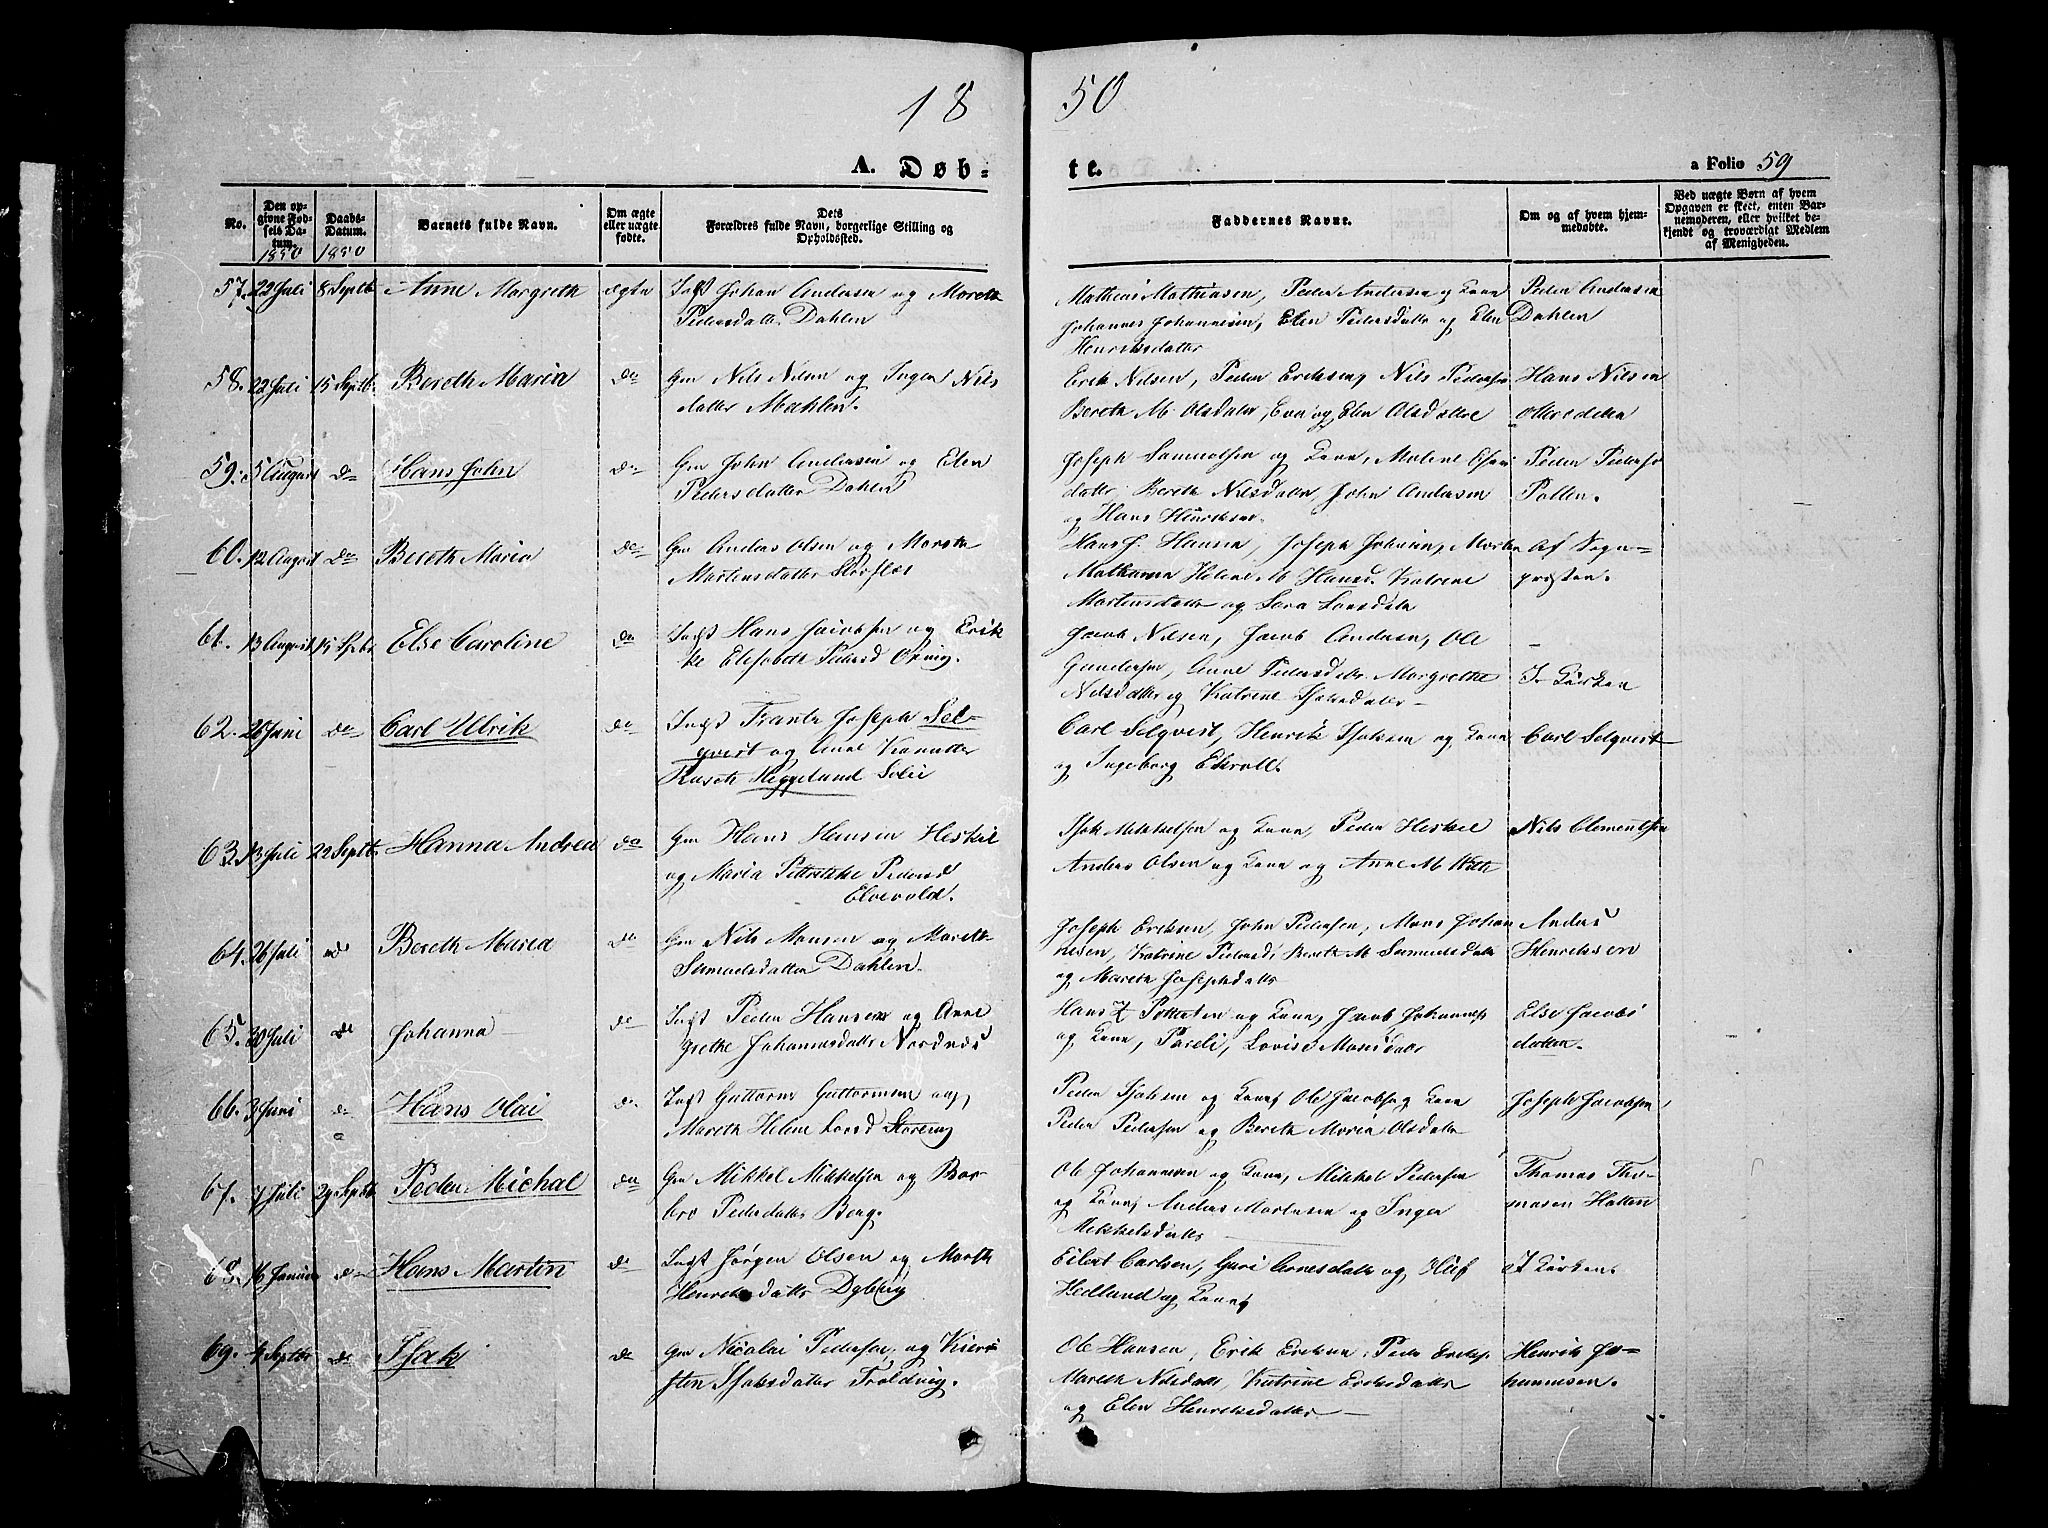 18 50
A. Døb- te. a Folio 59
No.
Den opgivne Fødsels Datum.
1850
Daabs-Datum.
1850
Barnets fulde Navn.
Om ægte eller uægte fødte.
Dets Forældres fulde Navn, borgerlige Stilling og Opholdssted.
Faddernes Navne.
Om og af hvem hjemmedøbte.
Ved uægte Børn af hvem Opgaven er skeet, enten Barnemoderen, eller hvilket bekjendt og troværdigt Medlem af Menigheden.
57. 22 Juli 8 Septb Anne Margreth ægte Indst Johan Andersen og Mareth
Pedersdatter Dahlen
Mathias Mathiasen, Peder Andersen og Kone
Johannes Johannesen, Elen Pedersdatter og Elen
Henriksdatter
Peder Andersen
Dahlen
58. 22 Juli 15 Septb. Bereth Maria do Gm Nils Nilsen og Inger Nils
datter Mæhlen.
Erik Nilsen, Peder Eriksen, Nils Pedersen
Bereth M. Olsdatter, Eva og Elen Olsdatter
Hans Nilsen
59. 5 August do Hans John do Gm John Andersen og Elen
Pedersdatter Dahlen
Joseph Samuelsen og Kone, Malene
datter Bereth Nilsdatter, John Andersen
og Hans Henriksen.
Peder Peders
Pollen.
60. 12 August do Bereth Maria do Gm Anders Olsen og Mareth
Martensdatter
Hans J. Hansen, Joseph Johnsen, Morten
Mathisen Helene M. Hansd. Katrine
Martensdatter og Sara Larsdatter
Af Sogne-
præsten.
61. 13 August 15 Sptbr Else Caroline do Indst Hans Jacobsen og Erik
ke Elisabeth Pedersd
Jacob Nilsen, Jacob Andersen, Ole
Gundersen, Anne Pedersdatter Margrethe
Nilsdatter og Katrine Isaksdatter
I Kirken
62. 26 Juni do Carl Ulrik do Indst Frantz Joseph Sel-
qvist og Anne Knudsdatter
Heggelund
Carl Selqvist, Henrik Isaksen og Kone
og Ingeborg Ekroll.
Carl Selqvist
63. 13 Juli 22 Septb. Hanna Andrea do Gm Hans Hansen Heskel
og Maria Petrikke Pedersd
Elvevold.
Isak Mikkelsen og Kone, Peder Heskel
Anders Olsen og Kone og Anne M.
Nils Clementsen
64. 26 Juli do Bereth Maria do Gm Nils Monsen og Mareth
Samuelsdatter Dahlen.
Joseph Eriksen, John Pedersen, Mons Johan
nesen, Katrine Pedersd, Bereth M. Samuelsdatter
og Mareth Josephsdatter
Anders
Henriksen
65. 30 Juli do Johanna do Indst Peder Hansen og Anne
Grethe Johannesdatter Nordnæs
Hans og Kone, Jacob Johannes
og Kone, Pareli, Lovise Monsdatter
Else Jacobs
datter.
66. 3 Juni do Hans Olai do Indst Guttorm Guttormsen og
Mareth Helene Larsd
Peder Isaksen og Kone, Ole Jacobs og Kone
Peder Pedersen og Bereth Maria Olsdatter
Joseph Jacobsen
67. 7 Juli 29 Septb Peder Michal do Gm Mikkel Mikkelsen og Bar-
bro Pedersdatter Berg.
Ole Johannesen og Kone, Mikkel Pedersen
og Kone, Anders Martensen og Inger
Mikkelsdatter
Thomas Tho-
masen Hatten
68. 16 Januar do Hans Martin do Indst Jørgen Olsen og Mareth
Henriksdatter
Eilert Carlsen, Guri Arnesdatter og Oluf
Hedlund og Kone
I Kirken.
69. 4 Septbr do Isak do Gm Nicolai Pedersen og Kier
sten Isaksdatter Troldvig.
Ole Hansen, Erik Eriksen, Peder Eriks
Mareth Nilsdatter, Katrine Eriksdatter
og Elen Henriksdatter
Henrik Jo-
hannesen.